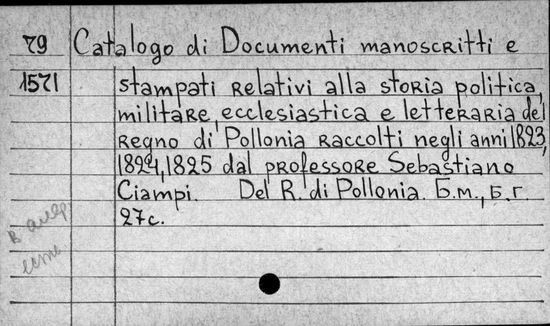 79 Catalogo di Documenti manoscritti e
1571 stampati relativi alla storia politica,
militare, ecclesiastica e letteraria del
Regno di Pollonia raccolti negli anni 1823,
1824, 1825 dal professore Sebastiano
Ciampi. Del R. di Pollonia. Б.м., Б.г.
27с.
В алф
есть